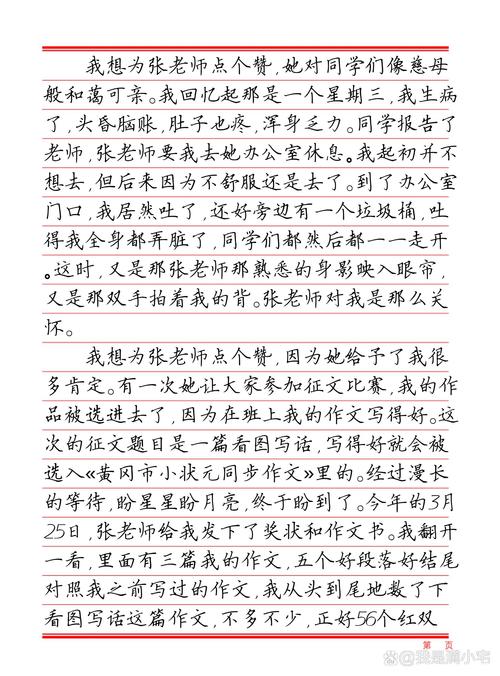 我想为张老师点个赞，她对同学们像慈母
般和蔼可亲。我回忆起那是一个星期三，我生病
了，头昏脑账，肚子也疼，浑身乏力。同学报告了
老师，张老师要我去她办公室休息。我起初并不
想去，但后来因为不舒服还是去了。到了办公室
门口，我居然吐了，还好旁边有一个垃圾桶，吐
得我全身都弄脏了，同学们都然后都一一走开
。这时，又是那张老师那熟悉的身影映入眼帘，
又是那双手拍着我的背。张老师对我是那么关
怀。
我想为张老师点个赞，因为她给予了我很
多肯定。有一次她让大家参加征文比赛，我的作
品被选进去了，因为在班上我的作文写得好。这
次的征文题目是一篇看图写话，写得好就会被
选入《黄冈市小状元同步作文》里的。经过漫长
的等待，盼星星盼月亮，终于盼到了。今年的3月
25日，张老师给我发下了奖状和作文书。我翻开
一看，里面有三篇我的作文，五个好段落好结尾
对照我之前写过的作文，我从头到尾地数了下
看图写话这篇作文，不多不少，正好56个红双
第 页
@我是滴小宅